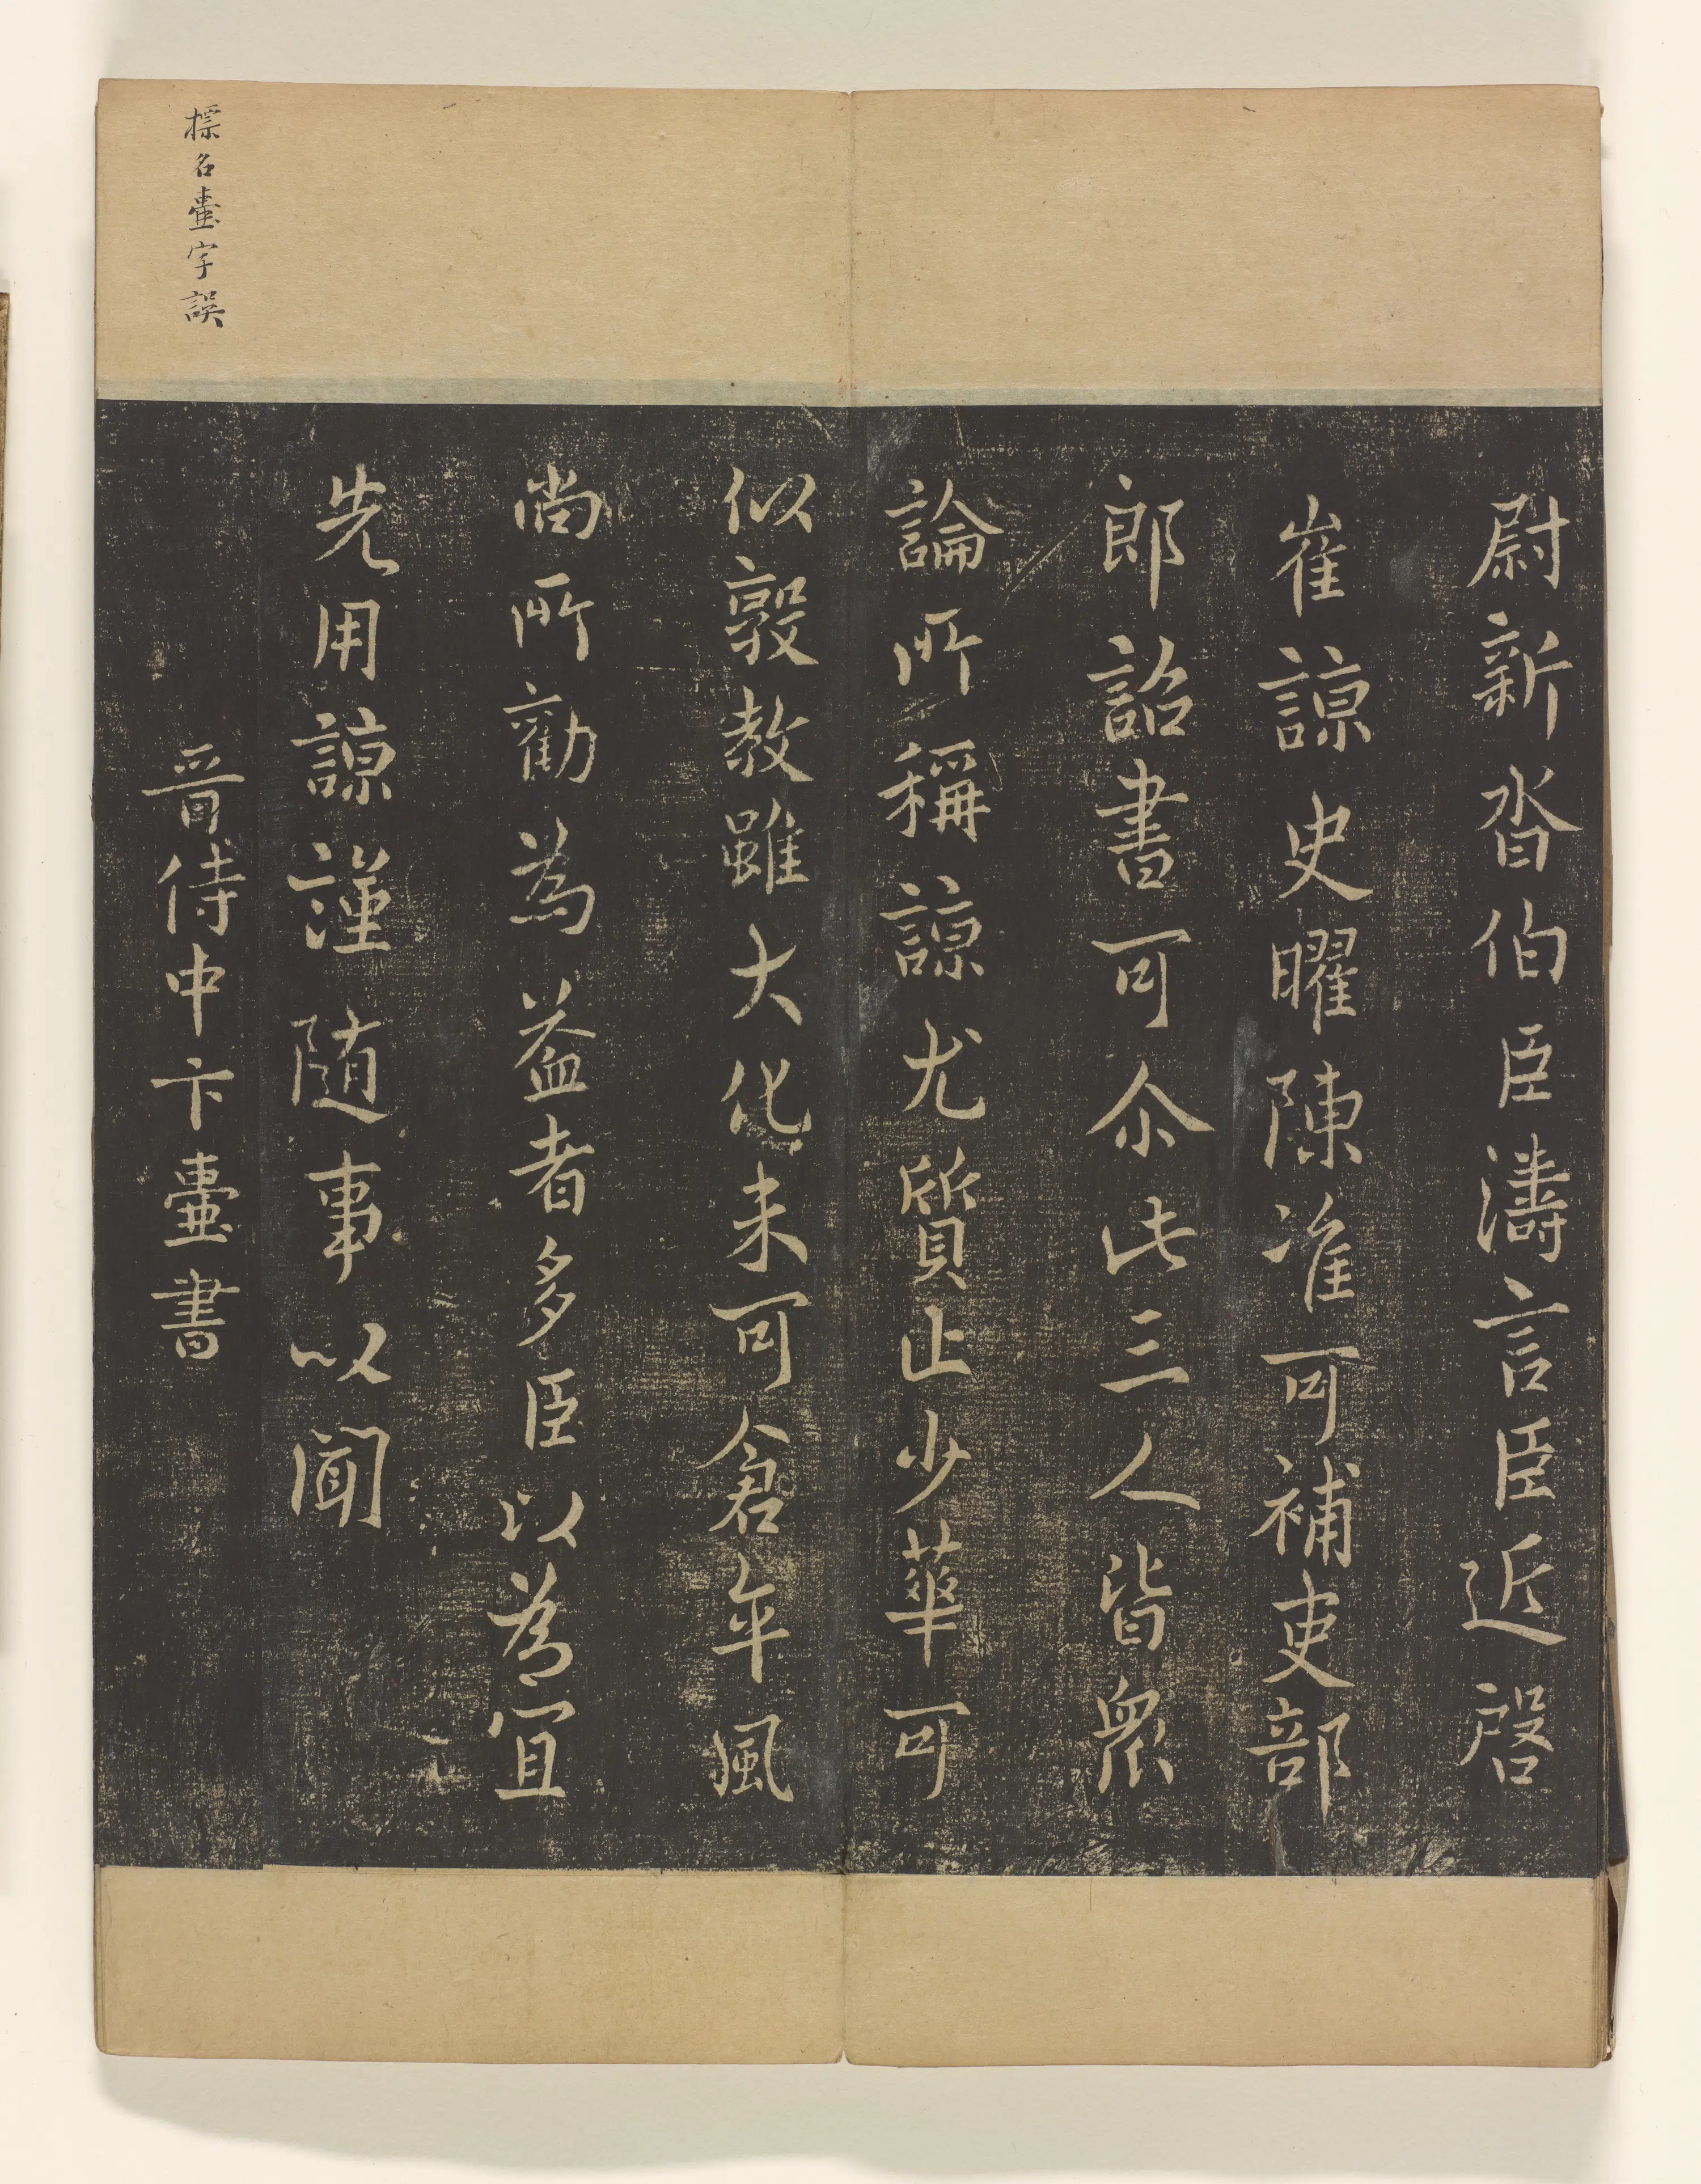 標名臺字誤
尉新沓伯臣濤言臣近啓
崔諒史曜陳准可補吏部
郎詔書可尒此三人皆衆
論所稱諒尤質止少華可
似敦教雖大化未可倉卒風
尚所勸為益者多臣以為宜
先用諒謹随事以聞
晉侍中卞臺書